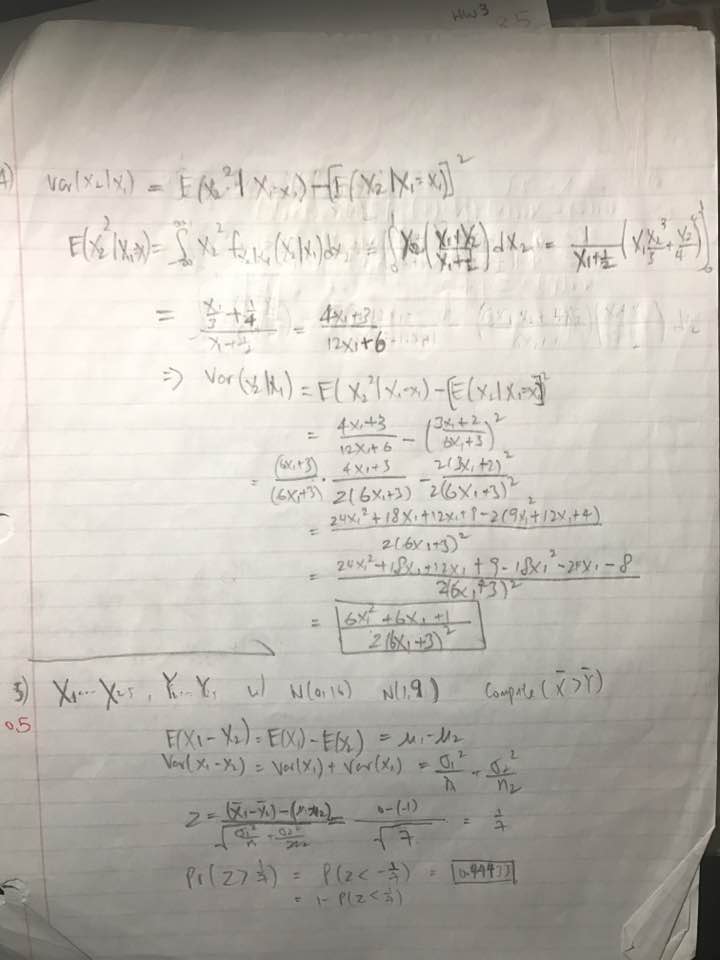 HW3 25
4) Var(X₂|X₁) = E(X₂²| X₁=x₁) - [E(X₂|X₁=x₁)]²
E(X₂²|X₁=x₁) = ∫_{-∞}^{∞} X₂² f_{X₂|X₁}(X₂|x₁)dx₂ = ∫₀¹ X₂² (X₁+X₂ / X₁+½) dX₂ = 1/(X₁+½) (X₁X₂³/3 + X₂⁴/4)]₀¹
= (X₁/3 + 1/4)/(X₁+½) = (4X₁+3)/(12X₁+6)
⇒ Var(X₂|X₁) = E(X₂²|X₁=x₁) - [E(X₂|X₁=x₁)]²
= (4X₁+3)/(12X₁+6) - ((3X₁+2)/(6X₁+3))²
= (6X₁+3)/(6X₁+3) · (4X₁+3)/2(6X₁+3) - 2(3X₁+2)²/2(6X₁+3)²
= (24X₁²+18X₁+12X₁+9-2(9X₁²+12X₁+4))/2(6X₁+3)²
= (24X₁²+18X₁+12X₁+9-18X₁²-24X₁-8)/2(6X₁+3)²
= (6X₁²+6X₁+1)/2(6X₁+3)²
5) X₁...X₂₅, Y₁...Y₁ w/ N(0,16) N(1,9) Compute (X̄>Ȳ)
0.5
E(X₁-X₂) = E(X₁)-E(X₂) = μ₁-μ₂
Var(X₁-X₂) = Var(X₁)+Var(X₁) = σ₁²/n - σ₂²/n₂
Z = = 0-(-1)/√7 = 1/7
Pr(Z>1/7) = P(Z<-1/7) = 0.44433
= 1-P(Z<1/7)